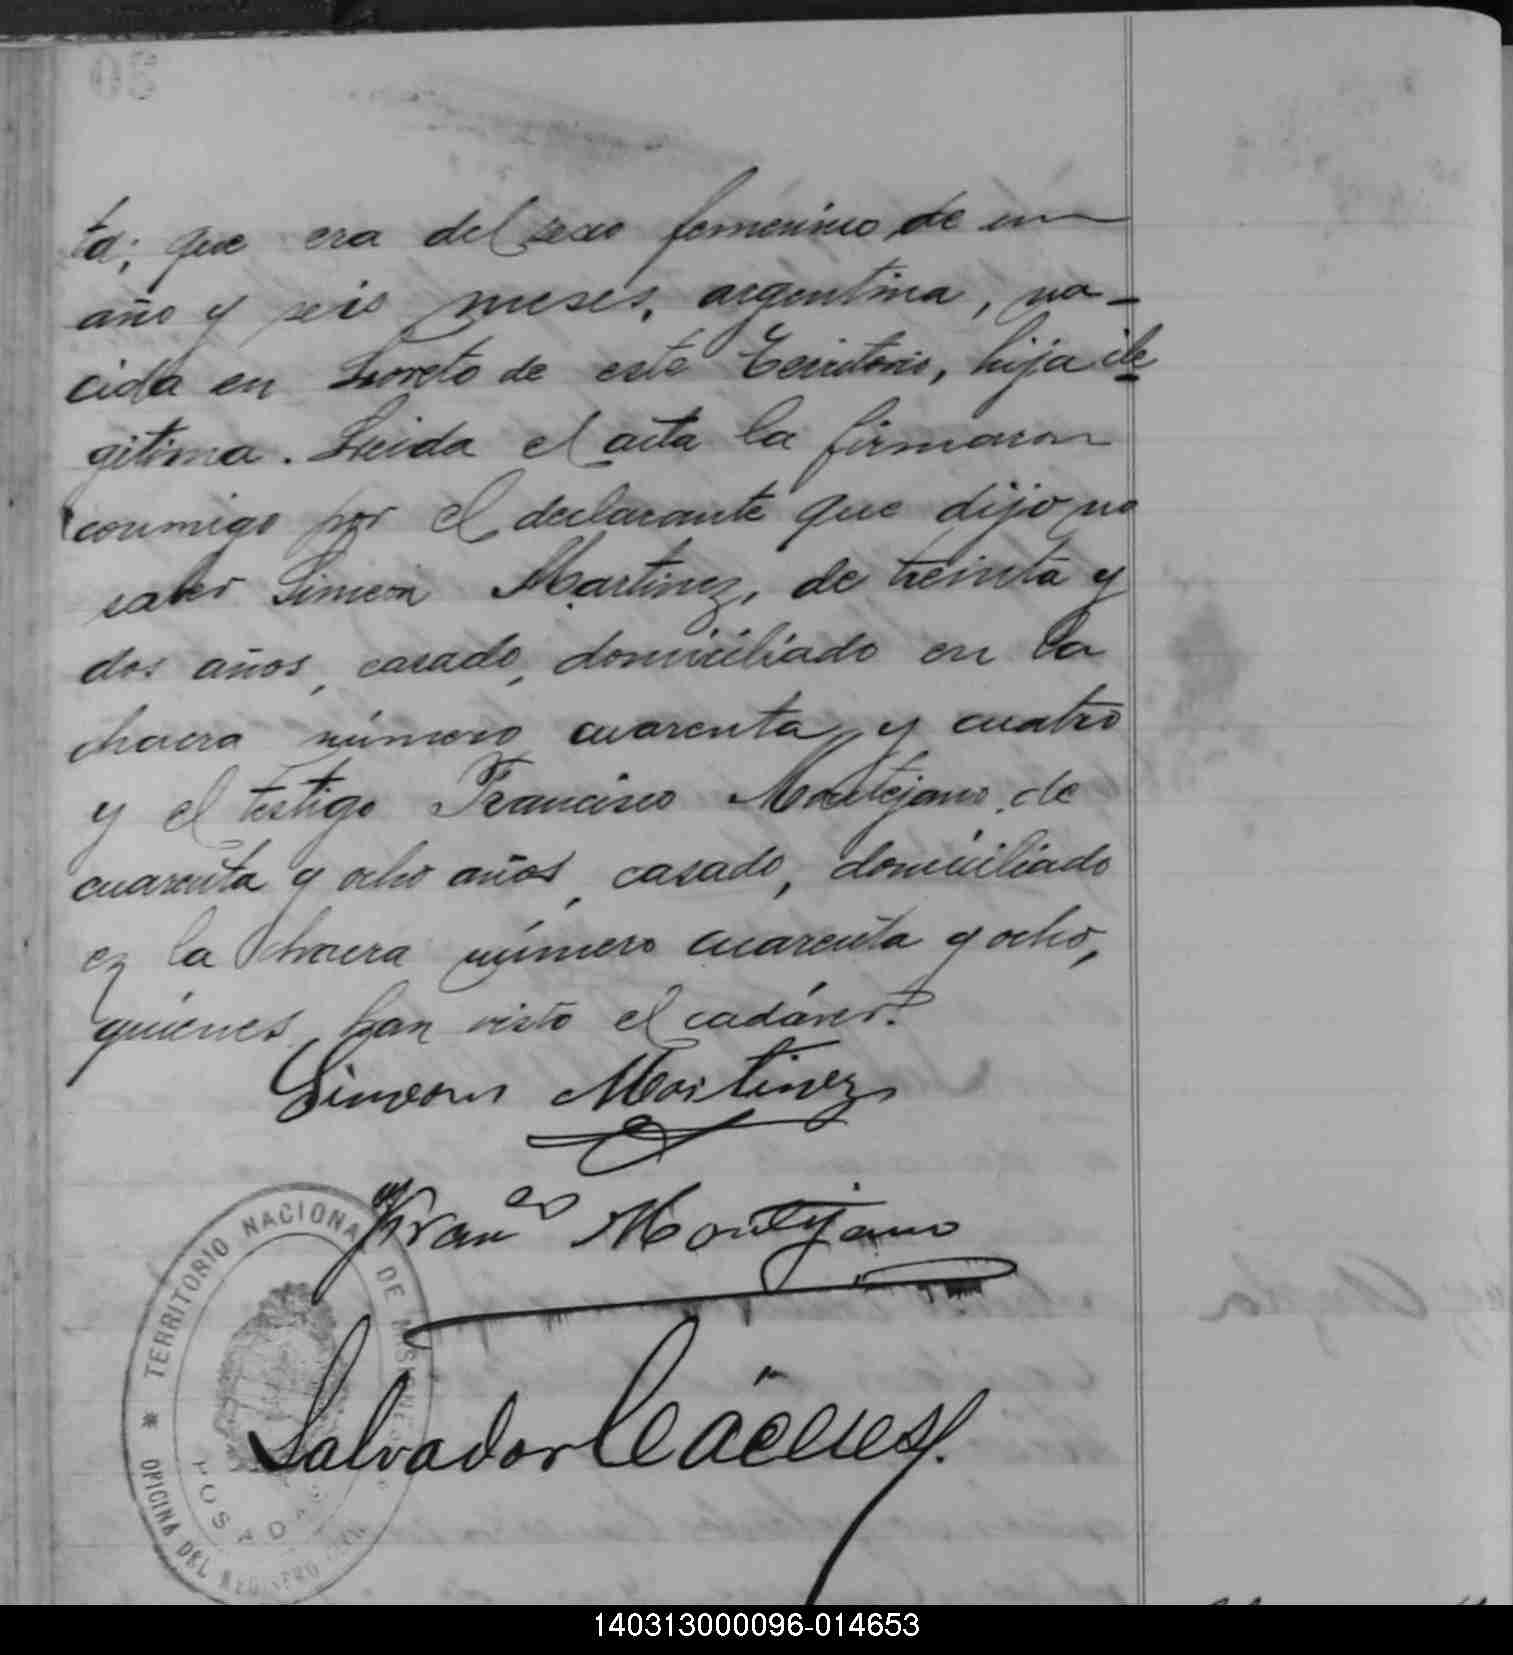 ta; que era del sexo femenino, de un
año y seis meses, argentina, na-
cida en Loreto de este Territorio, hija ile-
gitima. Leida el acta la firmaron
conmigo por el declarante que dijo no
saber Simeon Martinez, de treinta y
dos años, casado, domiciliado en la
chacra número cuarenta y cuatro
y el testigo Francisco Montejano, de
cuarenta y ocho años, casado, domiciliado
en la chacra número cuarenta y ocho,
quienes han visto el cadáver.
Simeon Martinez
Fran.co Montejano
Salvador
TERRITORIO NACIONAL DE MISIONES
OFICINA DEL REGISTRO
POSADAS
140313000096-014653